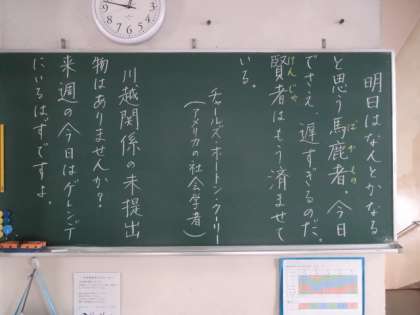 明日はなんとかなる
と思う馬鹿者。今日
でさえ、遅すぎるのだ。
賢者はもう済ませて
いる。
チャールズ・ホートン・クーリー
(アメリカの社会学者)
川越関係の未提出
物はありませんか?
来週の今日はゲレンデ
にいるはずですよ。